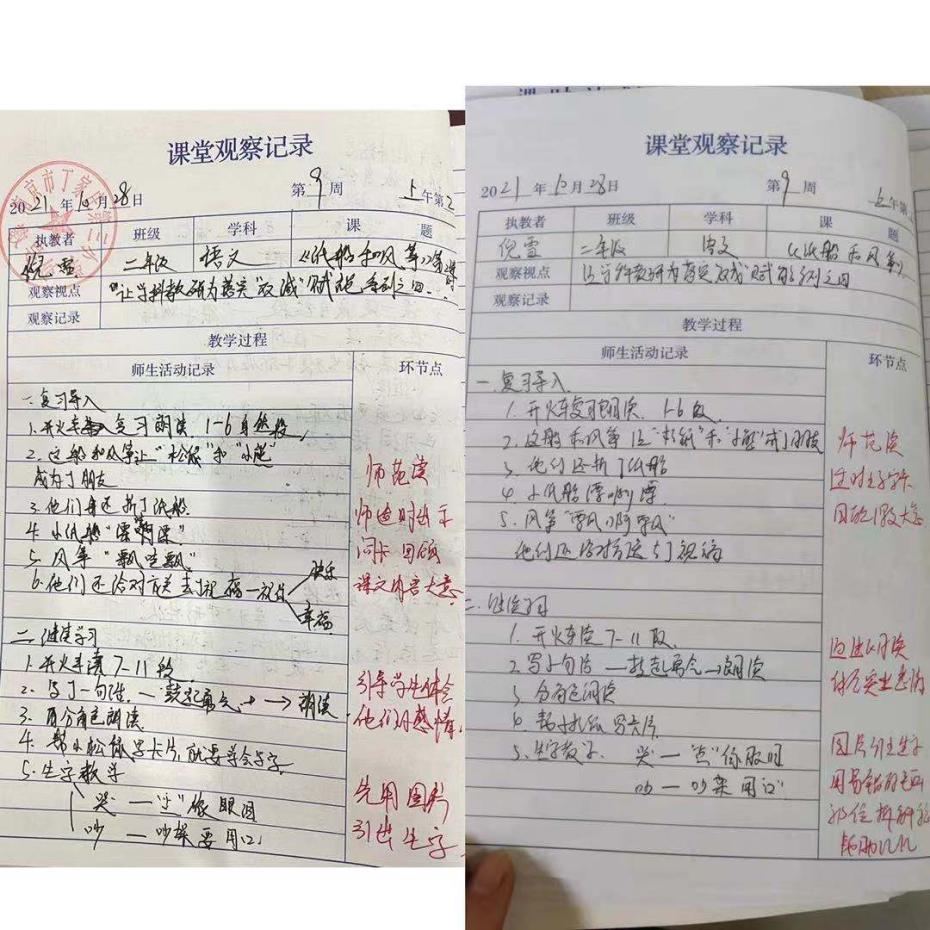 课堂观察记录
2021年10月28日 第9周 上午第2
执教者 班级 学科 课 题
倪雪 二年级 语文 《纸船和风筝》第
观察视点 "让学科教研为落实"双减"赋能系列之四
观察记录
教学过程
师生活动记录 环节点
一.复习导入
1.开火车 复习朗读. 1-6自然段
2.这船和风筝让"松鼠"和"小熊"
成为了朋友
师范读
3.他们 还折了纸船
师适时出示
4.小纸船"漂啊漂"
5.风筝"飘 飘"
词卡回顾
6.他们还给对方送去了祝福—祝你 快乐
幸福
课文内容大意
二.继续学习
1.开火车读7-11段
2.写了一句话.—鼓起勇气. → 朗读
引导学生体会
他们的感情.
3. 分角色朗读
4.帮小松鼠写卡片,就要学会写字.
5.生字教学
先用图片
哭—"丶"像眼泪
引出生字
吵—吵架要用口
课堂观察记录
2021年10月28日 第9周 上午第
执教者 班级 学科 课 题
倪雪 二年级 语文 《纸船和风筝》
观察视点 让学科教研为落实双减赋能系列之四
观察记录
教学过程
师生活动记录 环节点
一.复习导入
1.开火车复习朗读. 1-6段
2.这船和风筝让"松鼠"和"小熊"成了朋友
师范读
3.他们还折了纸船
4.小纸船漂啊漂
5.风筝"飘啊飘"
他们还给对方送去了祝福
二.继续
1.开火车读7-11段.
2.写了一句话—鼓起勇气→朗读
3.分角色朗读
6.帮小松鼠写卡片
5.生字教学. 哭—"点"像眼泪
图片引出生字
吵—吵架用口